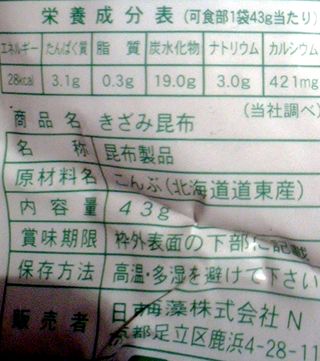 栄養成分表(可食部1袋43g当たり)
エネルギー たんぱく質 脂質 炭水化物 ナトリウム カルシウム
28kcal 3.1g 0.3g 19.0g 3.0g 421mg
(当社調べ)
商品名 きざみ昆布
名称 昆布製品
原材料名 こんぶ(北海道道東産)
内容量 43g
賞味期限 枠外表面の下部に記載
保存方法 高温・多湿を避けて下さい
販売者 日 海藻株式会社 N
京都足立区鹿浜4-28-11